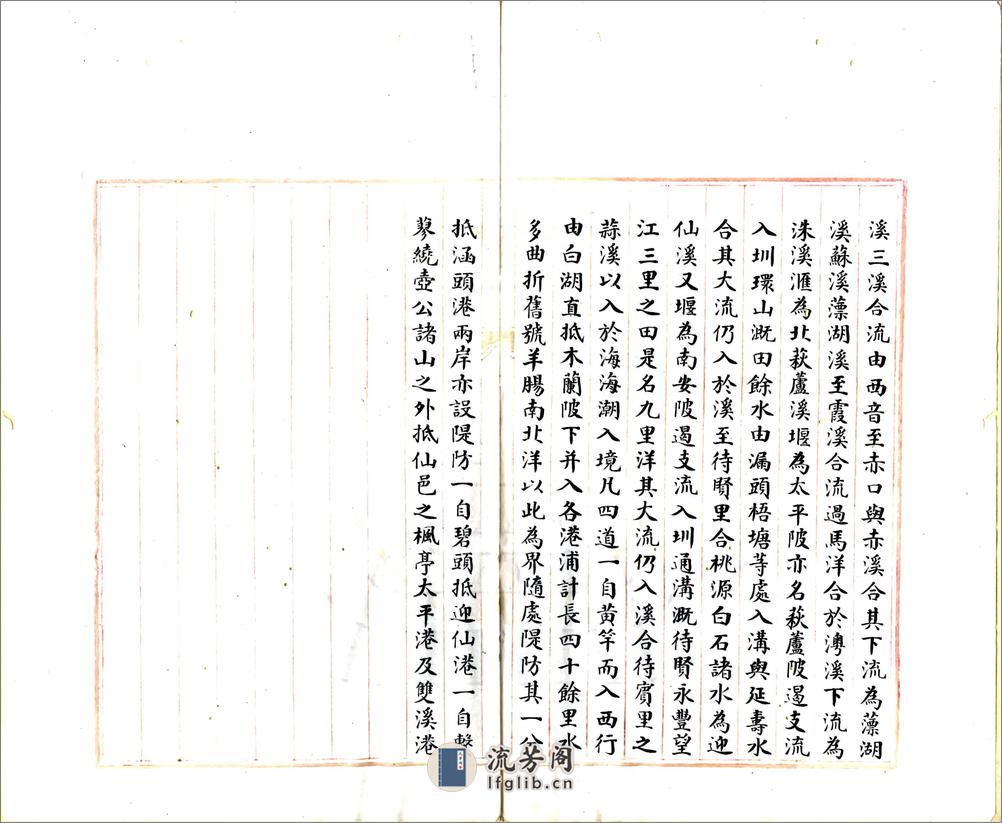 溪三溪合流由西音至赤口與赤溪合其下流為藻湖
溪蘇溪藻湖溪至霞溪合流過馬洋合於溿溪下流為
洙溪滙為北萩蘆溪堰為太平陂亦名萩蘆陂遏支流
入圳環山溉田餘水由漏頭梧塘等處入溝與延壽水
合其大流仍入於溪至待賢里合桃源白石諸水為迎
仙溪又堰為南安陂遏支流入圳通溝溉待賢永豐望
江三里之田是名九里洋其大流仍入溪合待賓里之
蒜溪以入於海海潮入境凡四道一自黄竿而入西行
由白湖直抵木蘭陂下并入各港浦計長四十餘里水
多曲折舊號羊腸南北洋以此為界隨處隄防其一分
抵涵頭港兩岸亦設隄防一自碧頭抵迎仙港一自
蓼繞壺公諸山之外抵仙邑之楓亭太平港及雙溪港
流芳阁
lfglib.cn